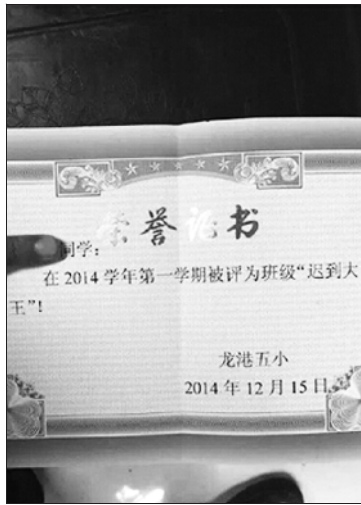 荣誉证书
同学：
在 2014 学年第一学期被评为班级“迟到大
王”！
龙港五小
2014 年 12 月 15 日